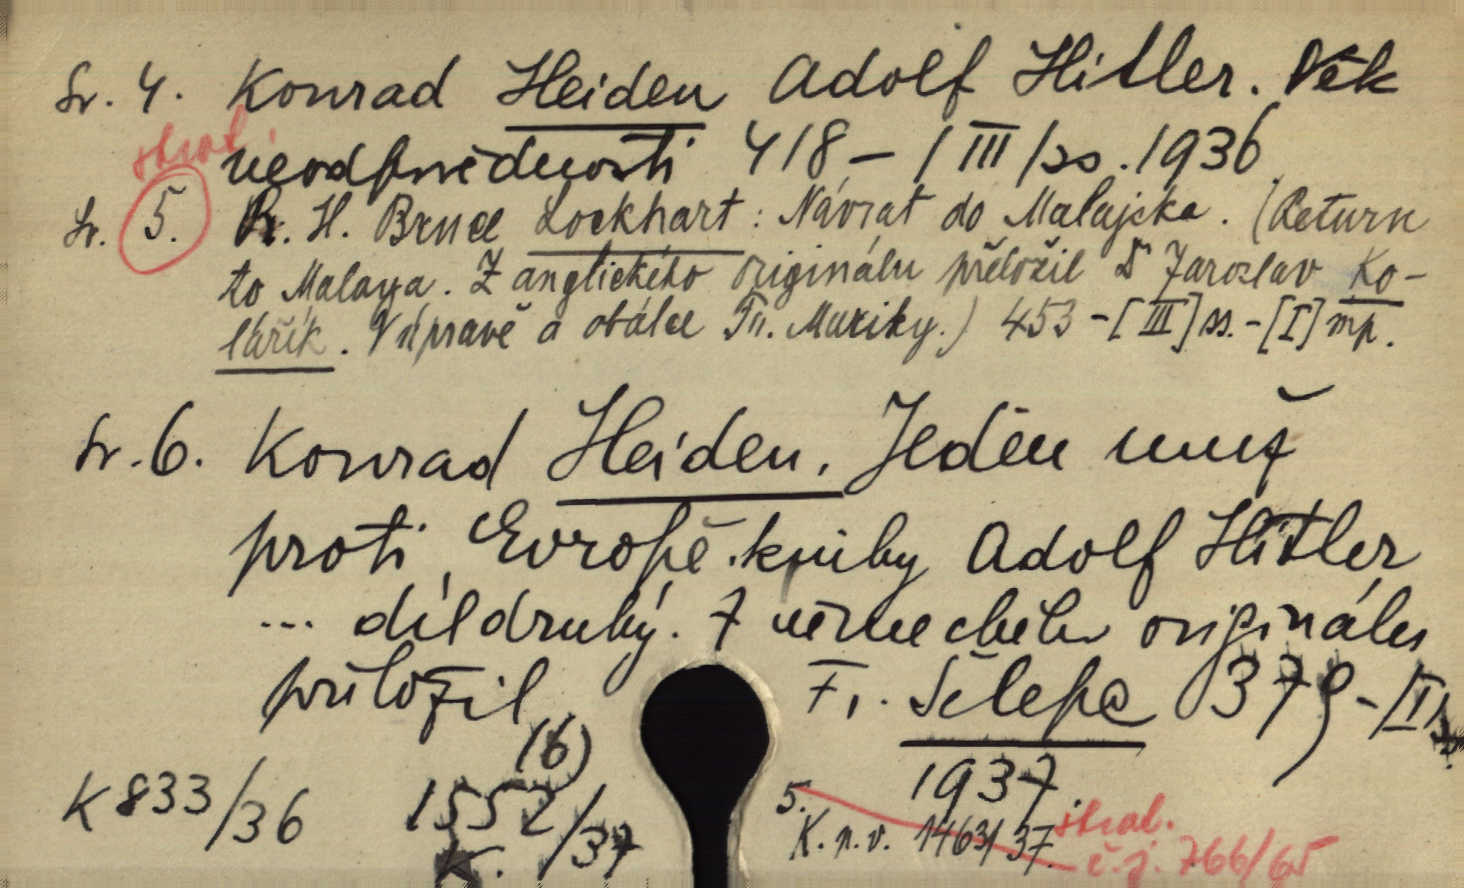 Sv. 4. Konrad Heiden Adolf Hitler. Věk
neodpovědnosti 418 – / III / ss. 1936
Sv. 5. R. H. Bruce Lockhart: Návrat do Malajska. (Return
to Malaya. Z anglického originálu přeložil Dr Jaroslav Ko-
lářík. V úpravě a obálce Fr. Muziky.) 453 – [III] ss. – [I] mp.
Sv. 6. Konrad Heiden. Jeden muž
proti Evropě. knihy Adolf Hitler
... díl druhý. Z německého originálu
přeložil Fr. Šelepa 379 – [I]
(6) 1937.
K 833/36 1552/37 5. škrt.
K. K. n. v. 1463/37. č.j. 766/65